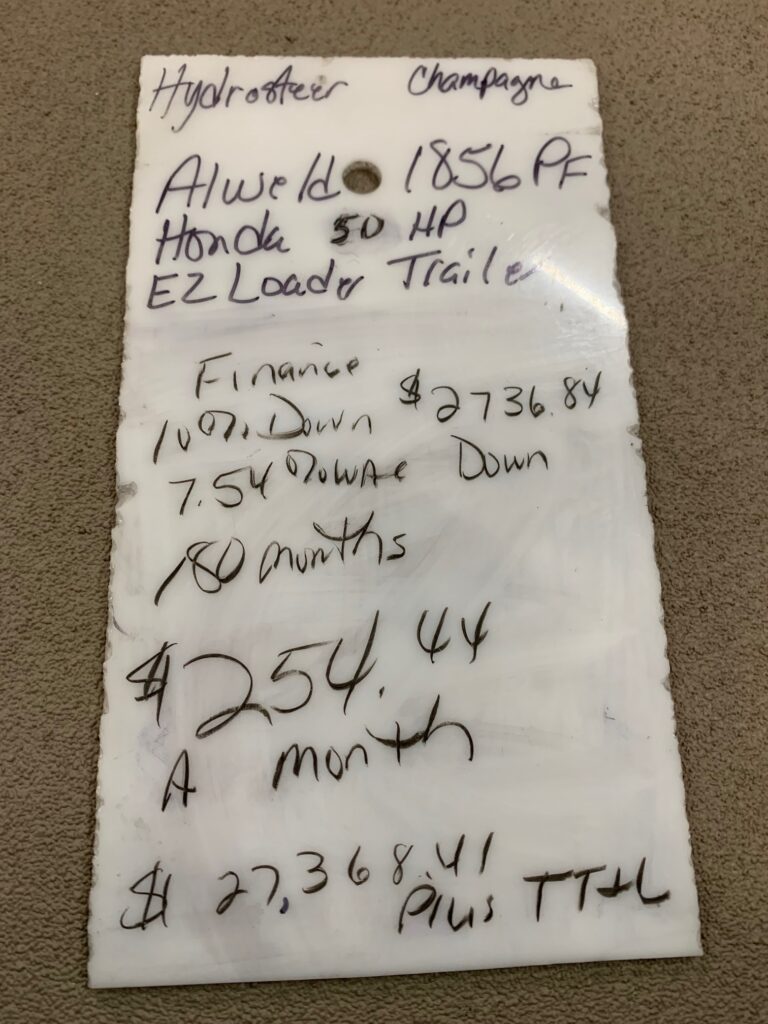 Hydrosteer Champagne
Alweld 1856 PF
Honda 50 HP
EZ Loader Trailer
Finance
10% Down $2736.84
7.54% WAC Down
180 months
$254.44
A month
$27,368.41
Plus TT+L